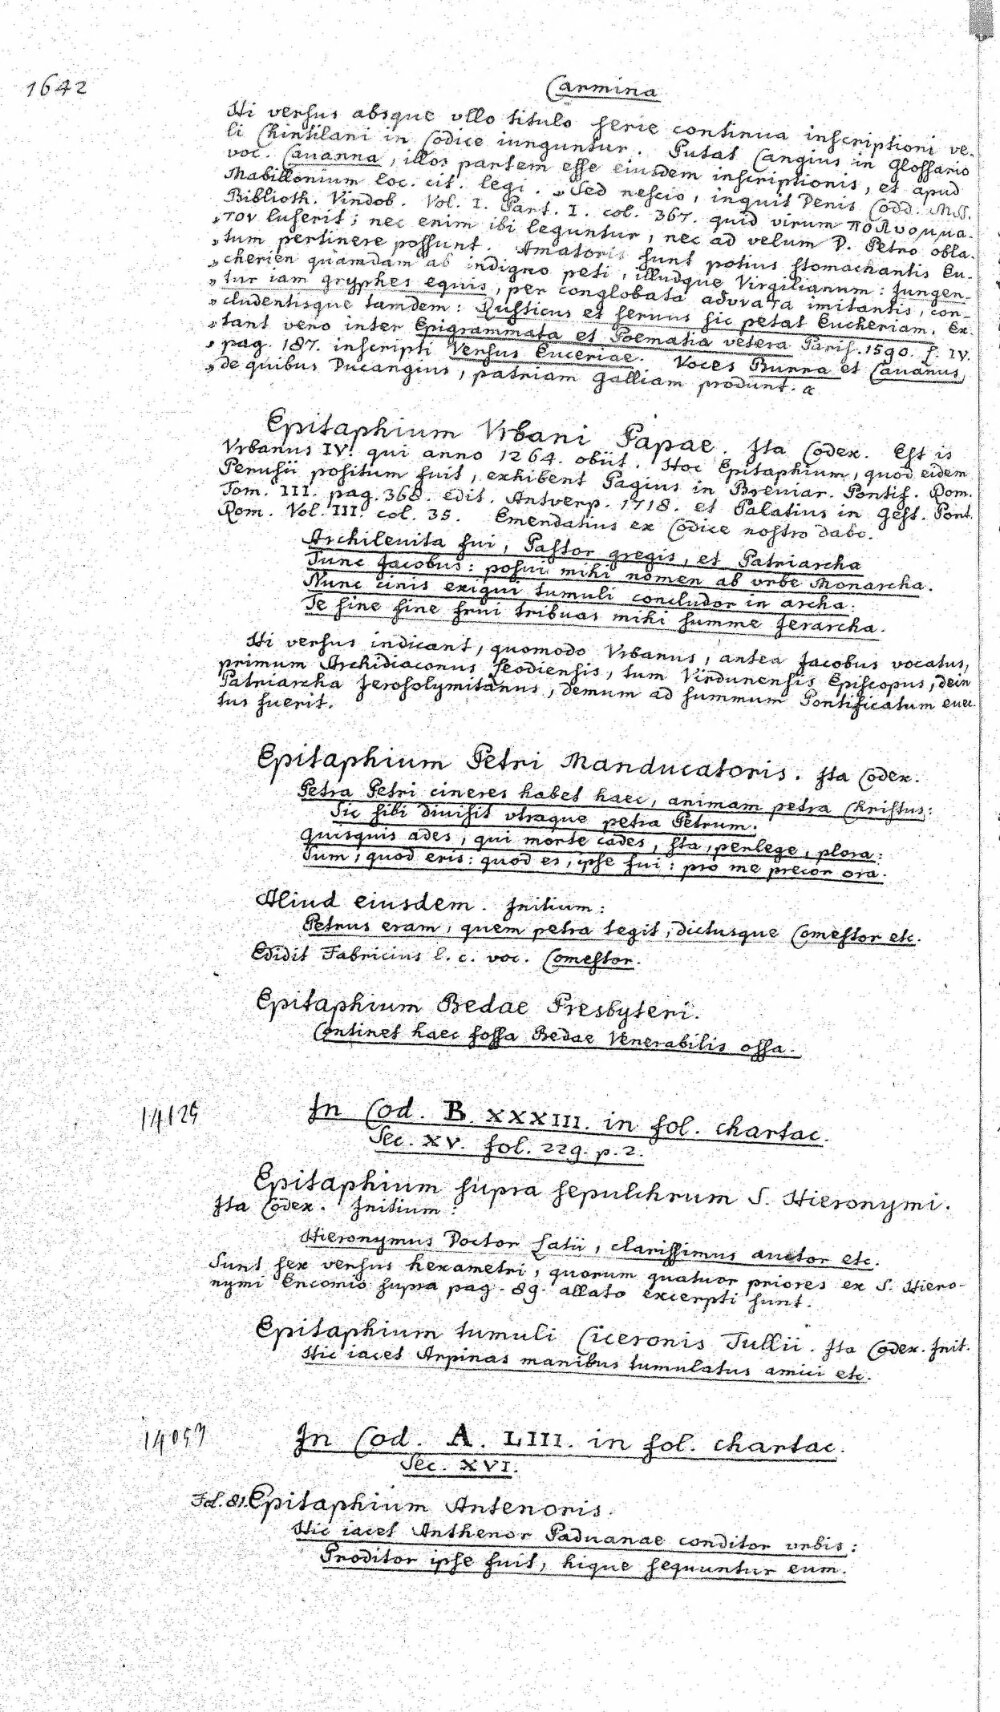 1642
Carmina
Hi versus absque vllo titulo serie continua inscriptioni ve-
li Chintilani in Codice iunguntur. Putat Cangius in Glossario
voc. Cauanna, illos partem esse eiusdem inscriptionis, et apud
Mabillonium loc. cit. legi. „Sed nescio, inquit Denis Codd. MSS.
Biblioth. Vindob. Vol. I. Part. I. col. 367. quid virum πολυομμα-
„τον luserit; nec enim ibi leguntur, nec ad velum D. Petro obla-
„tum pertinere possunt. Amatoris sunt potius stomachantis Eu-
„cherien quamdam ab indigno peti, illudque Virgilianum: Jungen-
„tur iam gryphes equis, per conglobata αδυνατα imitantis, con-
„cludentisque tamdem: Rusticus et seruus sic petat Eucheriam. Ex-
„tant vero inter Epigrammata et Poematia vetera Paris. 1590. f. IV.
„pag. 187. inscripti Versus Euceriae. Voces Burra et Cauanus,
„de quibus Ducangius, patriam Galliam produnt.
Epitaphium Vrbani Papae. Ita Codex. Est is
Vrbanus IV. qui anno 1264. obiit. Hoc Epitaphium, quod eidem
Perusii positum fuit, exhibent Pagius in Breviar. Pontif. Rom.
Tom. III. pag. 368. edit. Antverp. 1718. et Palatius in Gest. Pont.
Rom. Vol. III. col. 35. Emendatius ex Codice nostro dabo.
Archilevita fui, Pastor gregis, et Patriarcha
Tunc Jacobus: posui mihi nomen ab vrbe Monarcha.
Nunc cinis exigui tumuli concludor in archa:
Te sine fine frui tribuas mihi summe Jerarcha.
Hi versus indicant, quomodo Vrbanus, antea Jacobus vocatus,
primum Archidiaconus Leodiensis, tum Virdunensis Episcopus, dein
Patriarcha Jerosolymitanus, demum ad summum Pontificatum euec-
tus fuerit.
Epitaphium Petri Manducatoris. Ita Codex.
Petra Petri cineres habet haec, animam petra Christus:
Sic sibi diuisit vtraque petra Petrum.
Quisquis ades, qui morte cades, sta, perlege, plora:
Sum, quod eris: quod es, ipse fui: pro me precor ora.
Aliud eiusdem. Initium:
Petrus eram, quem petra tegit, dictusque Comestor etc.
Edidit Fabricius l. c. voc. Comestor.
Epitaphium Bedae Presbyteri.
Continet haec fossa Bedae Venerabilis ossa.
14125
In Cod. B. XXXIII. in fol. chartac.
Sec. XV. fol. 229. p. 2.
Epitaphium supra sepulchrum S. Hieronymi.
Ita Codex. Initium:
Hieronymus Doctor Latii, clarissimus auctor etc.
Sunt sex versus hexametri, quorum quatuor priores ex S. Hiero-
nymi Encomio supra pag. 89. allato excerpti sunt.
Epitaphium tumuli Ciceronis Tullii. Ita Codex. Init.
Hic iacet Arpinas manibus tumulatus amici etc.
14053
In Cod. A. LIII. in fol. chartac.
Sec. XVI.
Fol. 81. Epitaphium Antenoris.
Hic iacet Anthenor Paduanae conditor vrbis:
Proditor ipse fuit, hique sequuntur eum.